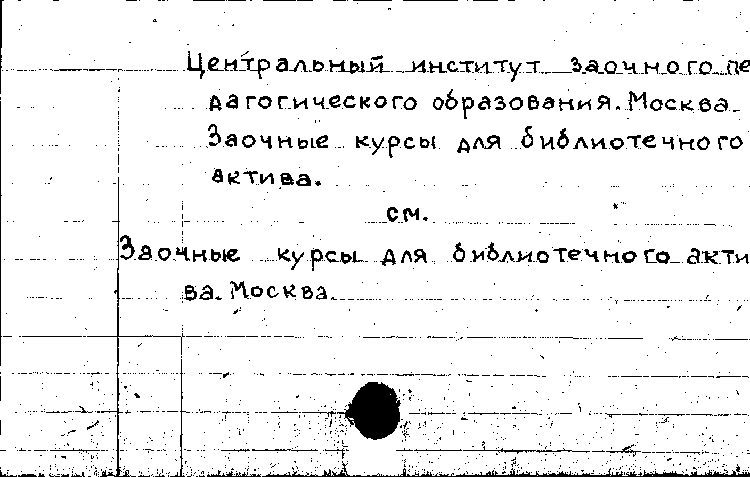 Центральный институт заочного пе
дагогического образования. Москва.
Заочные курсы для библиотечного
актива.
см.
Заочные курсы для библиотечного акти
ва. Москва.